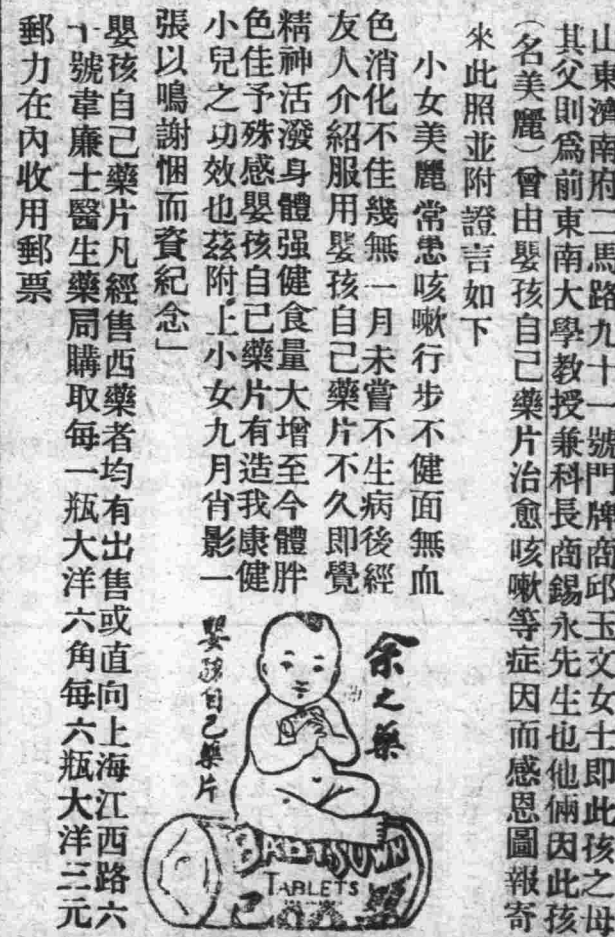 山東濟南府二馬路九十一號門牌商邱玉文女士即此孩之母
其父則爲前東南大學教授兼科長商錫永先生也他倆因此孩
(名美麗)曾由嬰孩自己藥片治愈咳嗽等症因而感恩圖報寄
來此照並附證言如下
小女美麗常患咳嗽行步不健面無血
色消化不佳幾無一月未嘗不生病後經
友人介紹服用嬰孩自己藥片不久即覺
精神活潑身體强健食量大增至今體胖
色佳予殊感嬰孩自己藥片有造我康健
小兒之功效也茲附上小女九月肖影一
張以鳴謝悃而資紀念」
余之藥
嬰孩自己藥片
BABY'S OWN
TABLETS
嬰孩自己藥片凡經售西藥者均有出售或直向上海江西路六
十號韋廉士醫生藥局購取每一瓶大洋六角每六瓶大洋三元
郵力在內收用郵票